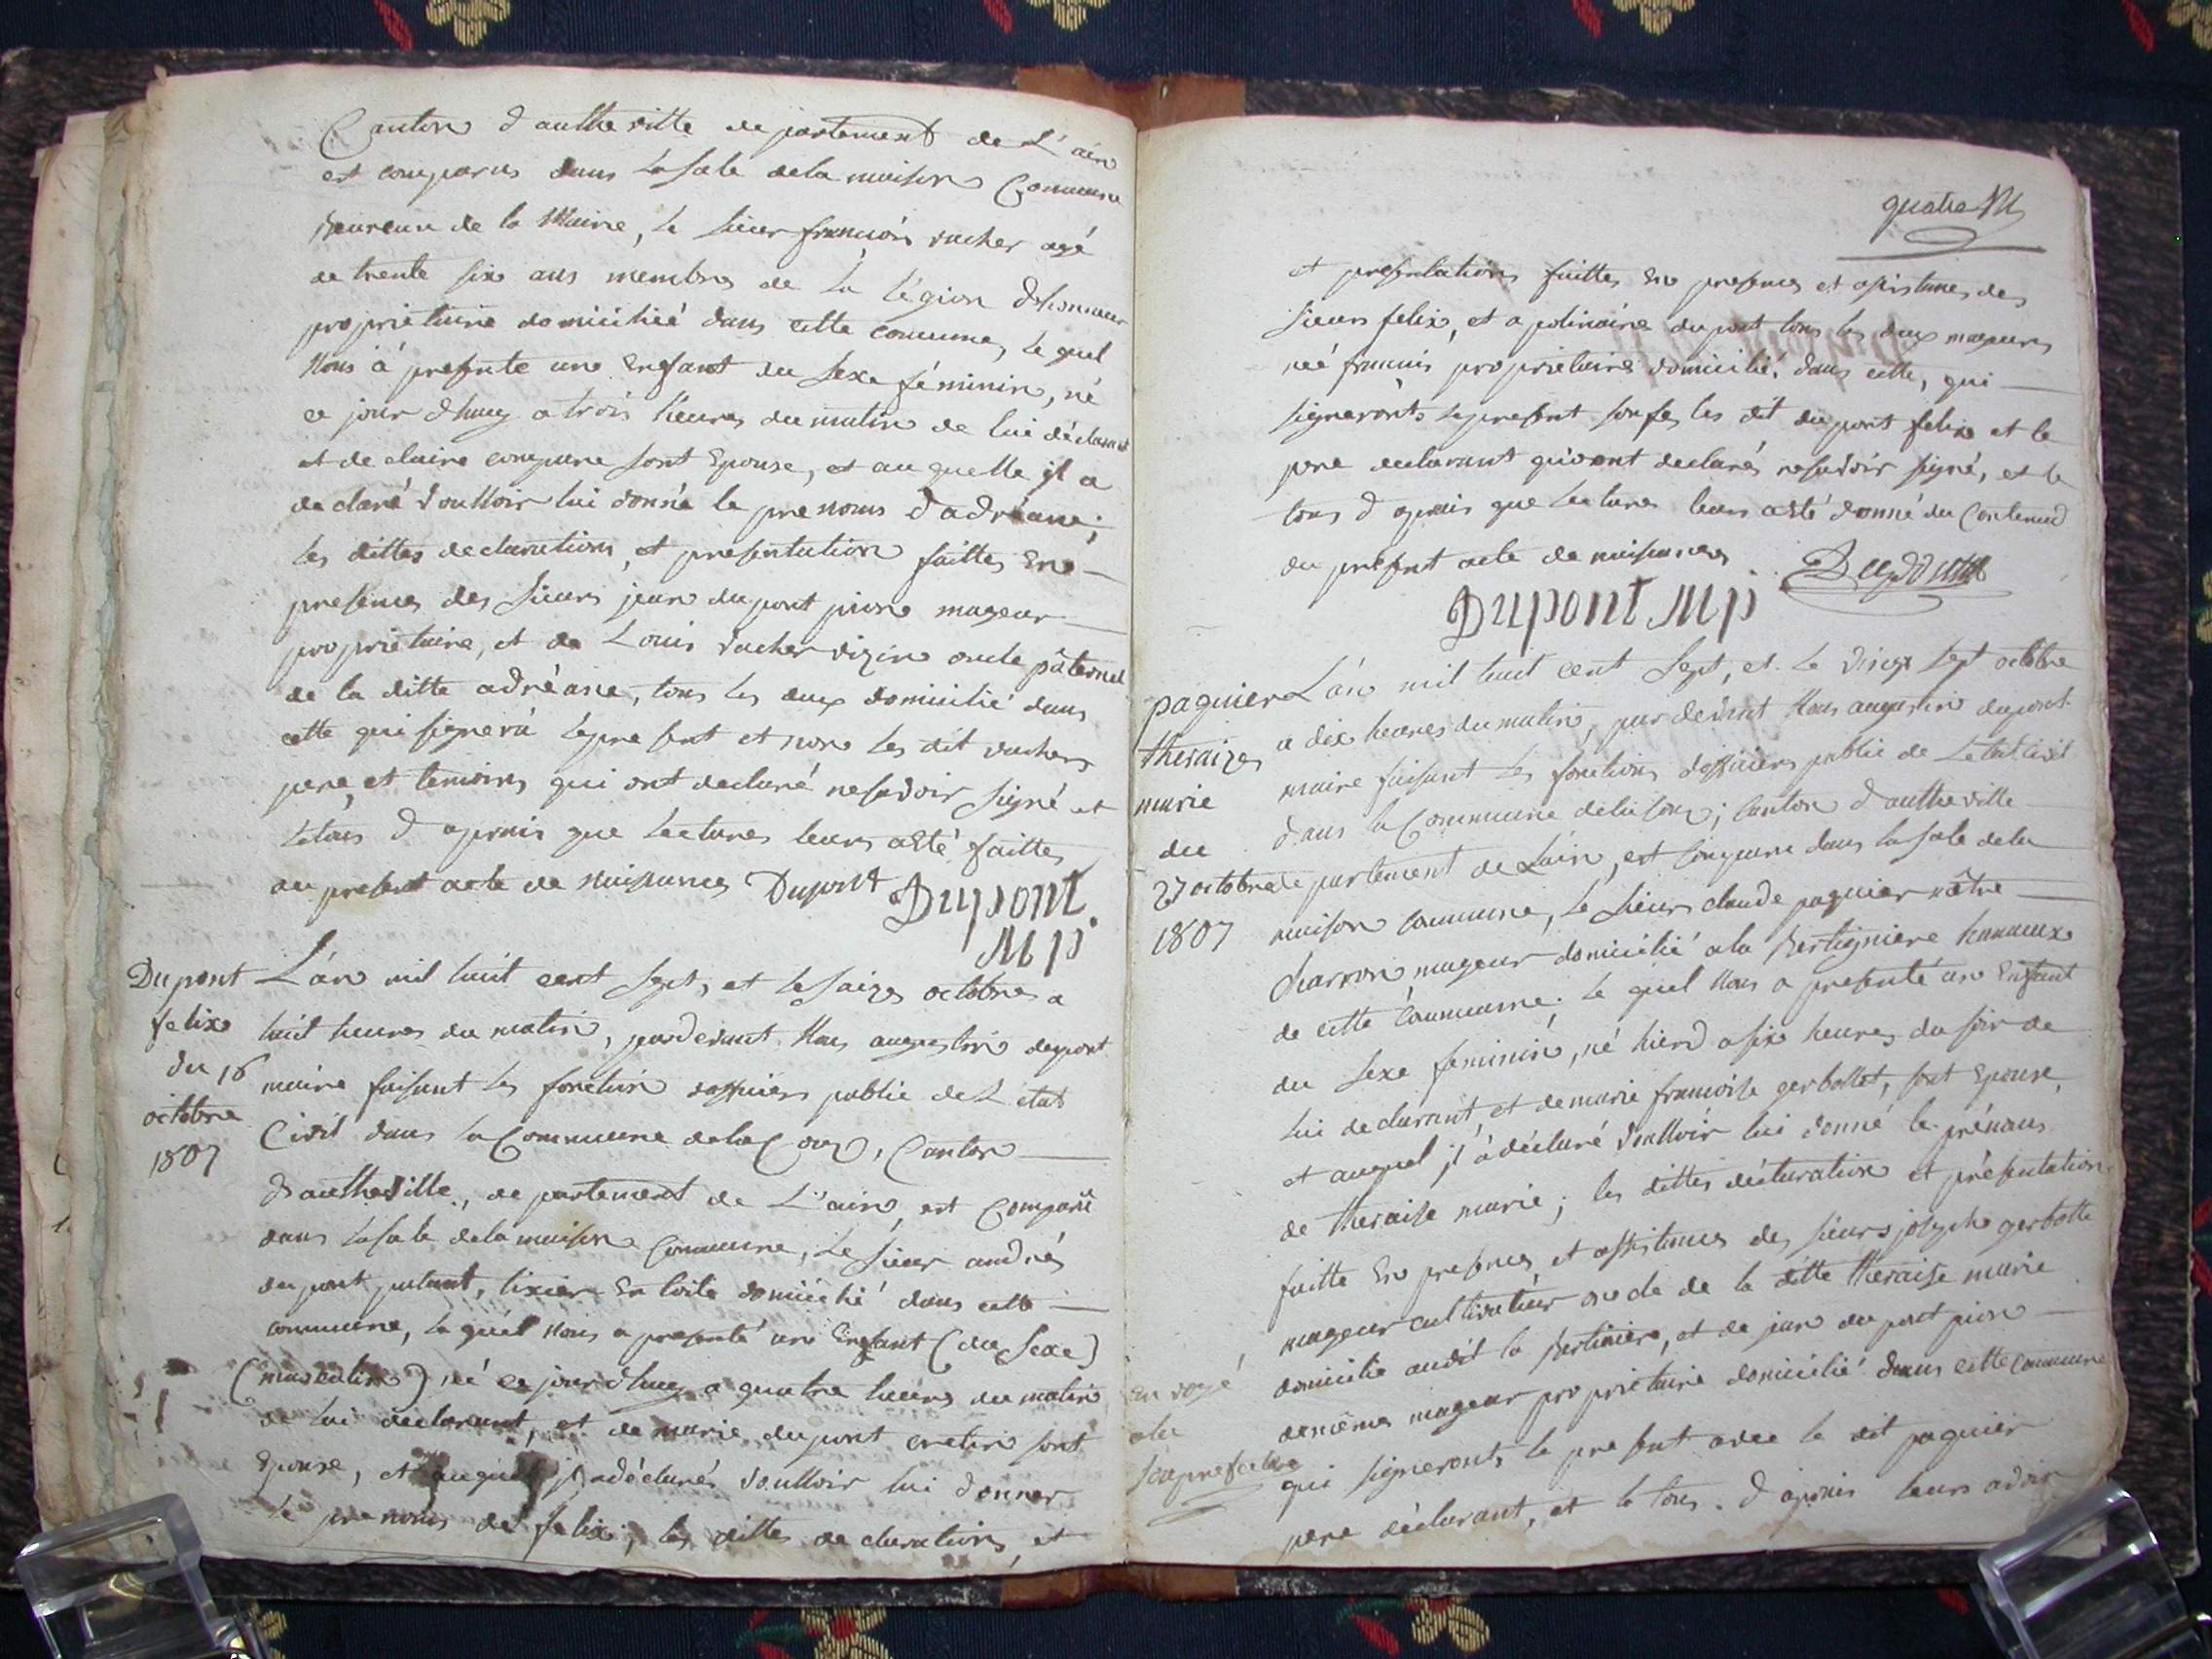 Canton d'autheville departement de L'ain
est comparus dans la sale de la maison Commune
Bureaux de la Maire, le sieur françois vucher agé
de trente six ans membre de la légion d'honneur
propriétaire domicilié dans cette commune, le quel
Nous à presenté une Enfant du sexe féminin, né
ce jour d'huy a trois heures du matin de lui déclarant
et de claire compare sont Epouse, et au quelle il a
declaré voulloir lui donné le prenoms d'adréane;
les dittes declarations, et presentation faittes En
presences des sieurs jean dupont pion mageur
propriétaire, et de Louis vucher vizin oncle pâternel
de la ditte adréane, tous les deux domicilié dans
cette qui signerà le present et non les dit vucher
pere, et temoins qui ont declaré ne savoir signé et
le tous d'aprais que lectures leurs a été faittes
du present acte de Naissances Dupont Dupont
Mp
Dupont
felix
du 16
octobre
1807
L'an mil huit cent sept, et le saize octobre a
huit heures du matin, pardevant Nous augustin dupont
maire faisant les fonction d'officiers public de L'état
Civil dans la Commune de la Coux, Canton
d'autheville, departement de L'ain, est Comparü
dans la sale de la maison Commune, Le sieur andrés
dupont, tixier En toile domicilié dans cette
commune, le quel Nous a presenté un Enfant (du sexe)
(masculin) né ce jour d'huy a quatre heures du matin
de lui declarant, et de marie dupont cretin sont
Epouse, et auquel jl a déclarés voulloir lui donner
le prenoms de felix; les dittes declarations, et
quatre
et presentations faittes En presences et assistances des
sieurs felix, et apolinaire dupont tous les deux mageurs
neé francais proprietaires domicilié dans cette, qui
signeronts le present sauf les dit dupont felix et le
pere declarant qui ont declarés ne savoir signé, et le
tous d'aprais que lectures leurs a été donné du Contenud
du present acte de naissances
Dupont Mp Dupont
paquier
theraize
marie
du
27 octobre
1807
L'an mil huit cent sept, et le vingt sept octobre
a dix heures du matin, par devant Nous augustin dupont
maire faisant les fonctions d'officiers public de L'etat civil
dans la Commune de la Coux; canton d'autheville
departement de Lain, est comparu dans la sale de la
maison commune, le sieurs claude paquier mâitre
Charron, mageur domicilié a la Bertigniere hameaux
de cette Commune; le quel Nous a presenté un Enfant
du sexe feminin, né hierd a six heures du soir de
lui declarant, et de marie francoise gerbollet, sont Epouse,
et auquel jl à déclaré voulloir lui donné le prénoms
de theraise marie; les dittes déclaration et présentation
faitte En presences, et assistances des sieurs joseph gerbolle
mageur cultivateur oncle de la ditte theraise marie
domicilié audit la Bertiniere, et de jean dupont pion
demêmes mageur propriétaire domicilié dans cette commune
qui signeronts le present avec le dit paquier
pere déclarant, et le tous d'aprais leurs avoir
Envoyé
a la
souprefecture